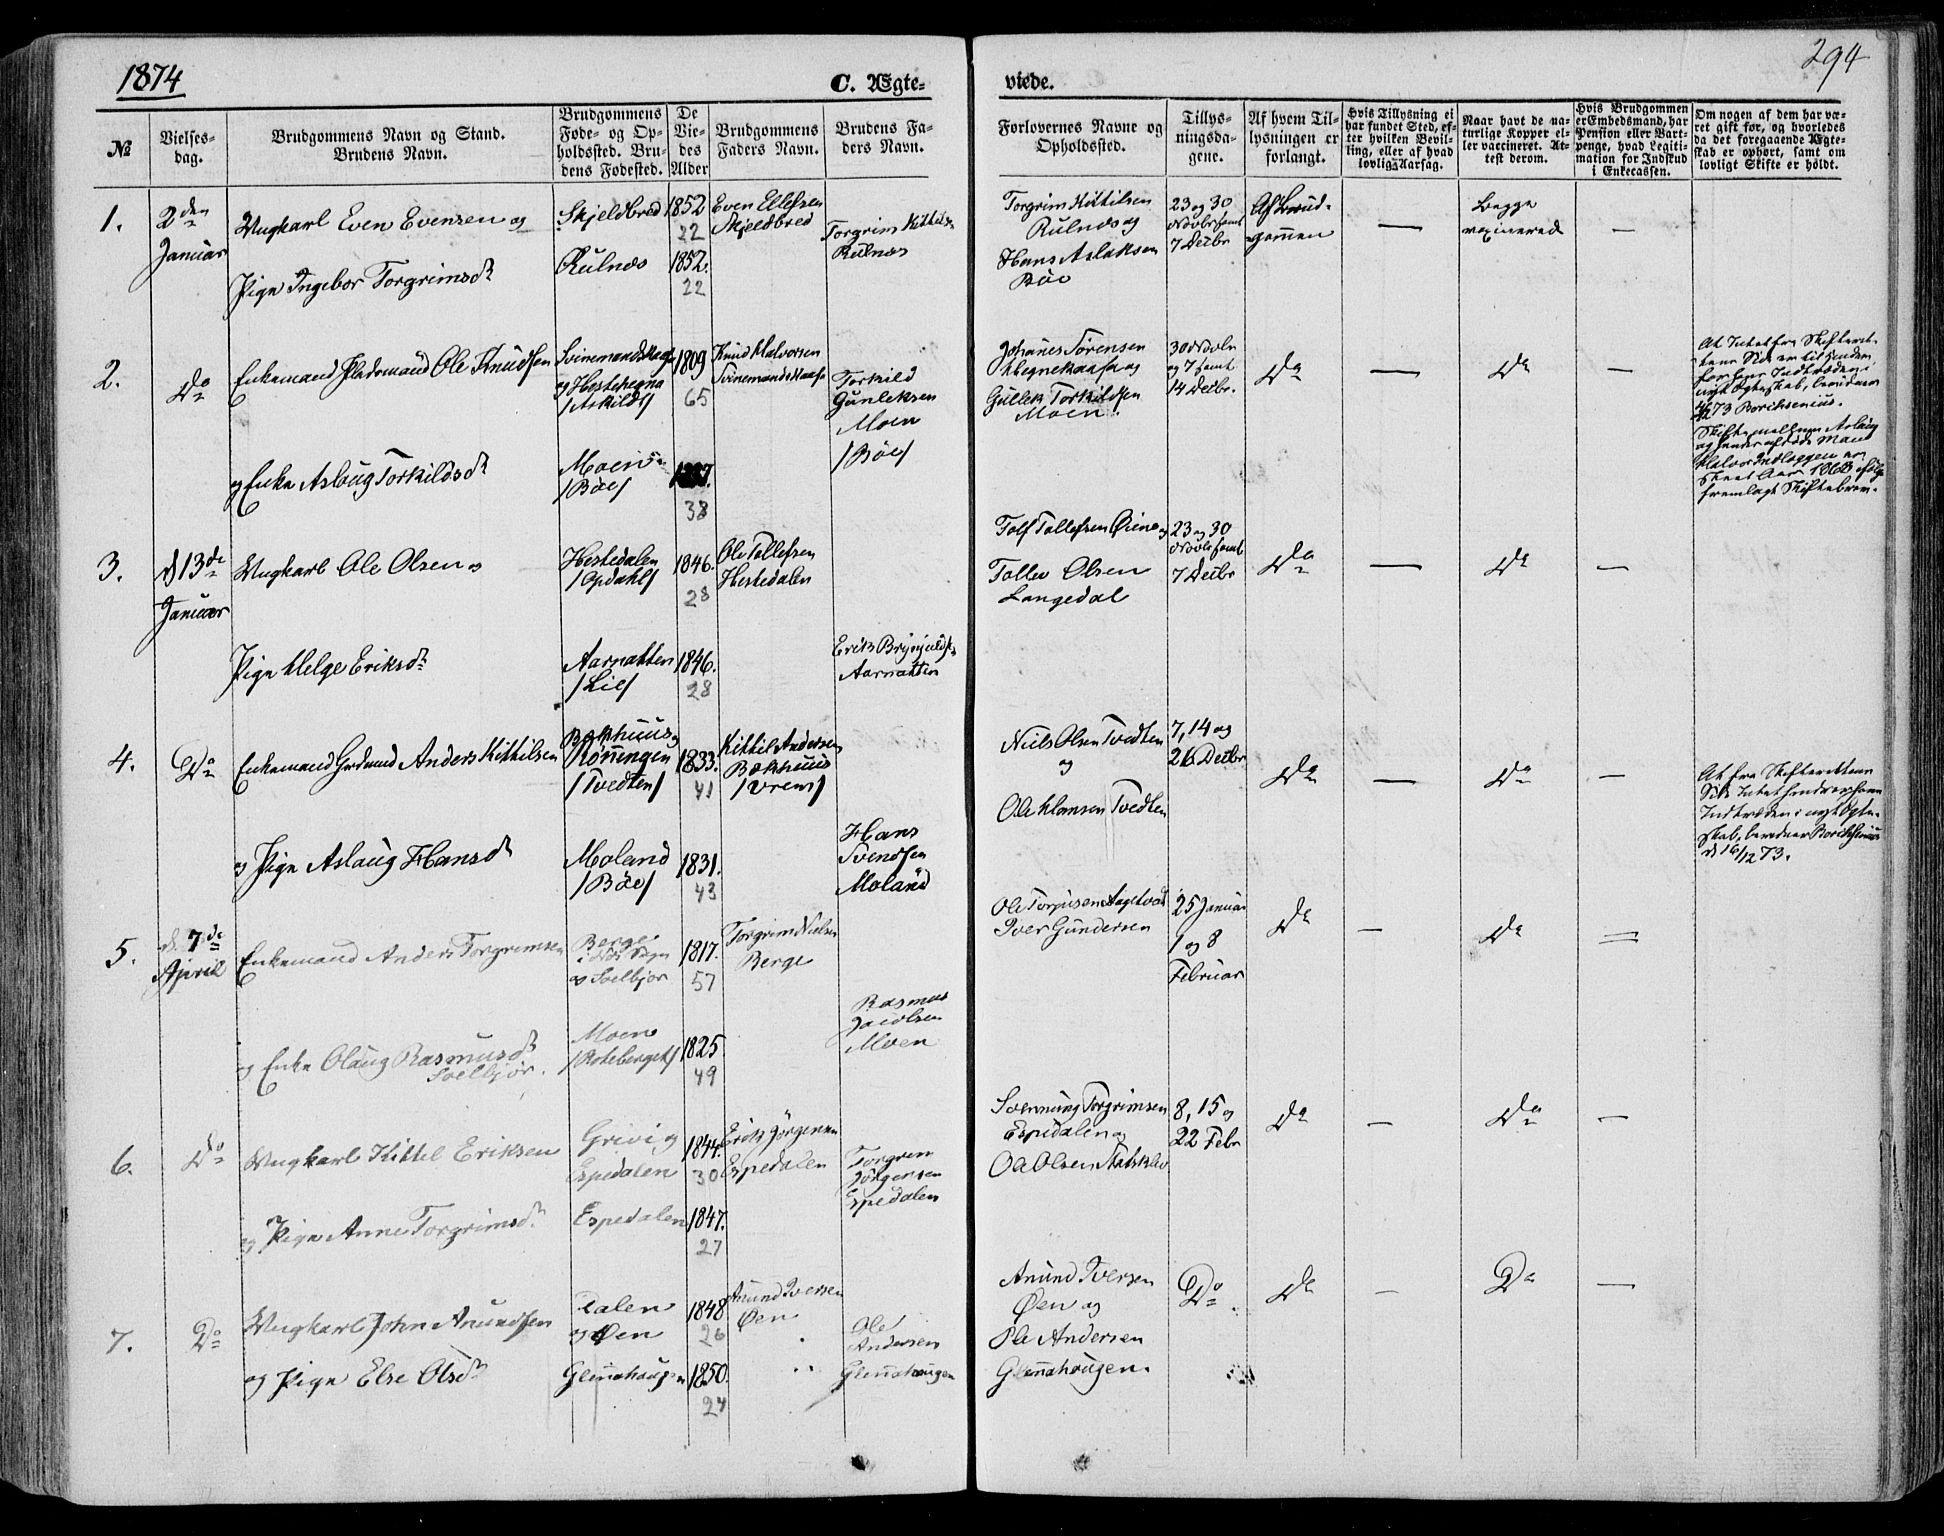 1874
C. Ægte-
viede.
294
№
Vielses-
dag.
Brudgommens Navn og Stand.
Brudens Navn.
Brudgommens
Føde- og Op-
holdssted. Bru-
dens Fødested.
De
Vie-
des
Alder
Brudgommens
Faders Navn.
Brudens Fa-
ders Navn.
Forlovernes Navne og
Opholdssted.
Tillys-
ningsda-
gene.
Af hvem Til-
lysningen er
forlangt.
Hvis Tillysning ei
har fundet Sted, ef-
ter hvilken Bevil-
ling, eller af hvad
lovlig Aarsag.
Naar havt de na-
turlige Kopper el-
ler vaccineret. At-
test derom.
Hvis Brudgommen
er Embedsmand, har
Pension eller Vart-
penge, hvad Legiti-
mation for Indskud
i Enkecassen.
Om nogen af dem har væ-
ret gift før, og hvorledes
da det foregaaende Ægte-
skab er ophørt, samt om
lovligt Skifte er holdt.
1.
2den
Januar
Ungkarl Even Evensen og
Pige Ingebor Torgrimsdr
Skjeldbred
Rulnæs
1852
22
1852.
22
Even Ellefsen
Skjeldbred
Torgrim Kittils.
Rulnæs
Torgrim Kittilsen
Rulnæs og
Hans Aslaksen
Bøe
23 og 30
Novbr samt
7 Decbr
Af Brud-
gommen
—
Begge
vaxinered
—
2.
Do
Enkemand Pladsmand Ole Knudsen
og Enke Aslaug Torkildsdr
Svinemandskaasa
og Hestehegna
/Askilds/
Moen
/Bøe/
1809
65
1837.
38
Knud Halvorsen
Svinemandskaasa
Torkild
Gunleksen
Moen
/Bøe/
Johanes Sørensen
og
Gullek Torkildsen
Moen
30 Novbr
og 7 samt
14 Decbr.
Do
—
Do
—
At Intet fra Skifteret-
tens Side er til Hinder
for hans Indtræden i
nyt Ægteskab, bevidner
73 Borchsenius.
Skifte mellem Aslaug
og hendes afdøde Mand
Halvor
skeet Aar 1868 ifølge
fremlagt Skiftebrev.
3.
d 13de
Januar
Ungkarl Ole Olsen og
Pige Helge Eriksdr
Hestedalen
/Opdahl/
Aarnatten
/Lie/
1846.
28
1846.
28
Ole Tollefsen
Hestedalen
Erik Brynjulfs.
Aarnatten
Tolf Tollefsen Øiene og
Tollev Olsen
Langedal
23 og 30
Novbr samt
7 Decbr
Do
—
Do
—
4.
Do
Enkemand Gaardmand Anders Kittilsen
og Pige Aslaug Hansdr
Bøkhuus og
Rønningen
/Tvedten/
Moland
/Bøe/
1833.
41
1831.
43
Kittil Andersen
Bøkhuus
/Vreim/
Hans
Svendsen
Moland
Niels Olsen Tvedten
og
Ole Hansen Tvedten
7, 14 og
26 Decbr
Do
—
Do
—
At fra Skifterettens
Side Intet hindrer hans
Indtræden i nyt Ægte-
skab, bevidner Borchsenius
d 16/12 73.
5.
d. 7de
April
Enkemand Anders Torgrimsen
og Enke Olaug Rasmusdr
Solbjør.
Berge
og Solbjør
Moen
/Roteberget/
1817.
57
1825
49
Torgrim Nielsen
Berge
Rasmus
Jacobsen
Moen
Ole Torjusen Aagetvedt
Iver Gundersen
25 Januar
1 og 8
Februar
Do
—
Do
=
6.
Do
Ungkarl Kittel Eriksen
og Pige Anne Torgrimsdr.
Grivi og
Espedalen
Espedalen
1844.
30
1847.
27
Erik Jørgensen
Espedalen
Torgrim
Jørgensen
Espedalen
Svennung Torgrimsen
Espedalen og
Ole Olsen Statsklev
8, 15 og
22 Febr
Do
—
Do
—
7.
Do
Ungkarl John Anundsen
og Pige Else Olsdr
Dalen
og Øen
Glenahaugen
1848
26
1850.
24
Anund Iversen
Øen
Ole
Andersen
Glenahaugen
Anund Iversen
Øen og
Ole Andersen
Glenahaugen.
Do
Do
—
Do
—